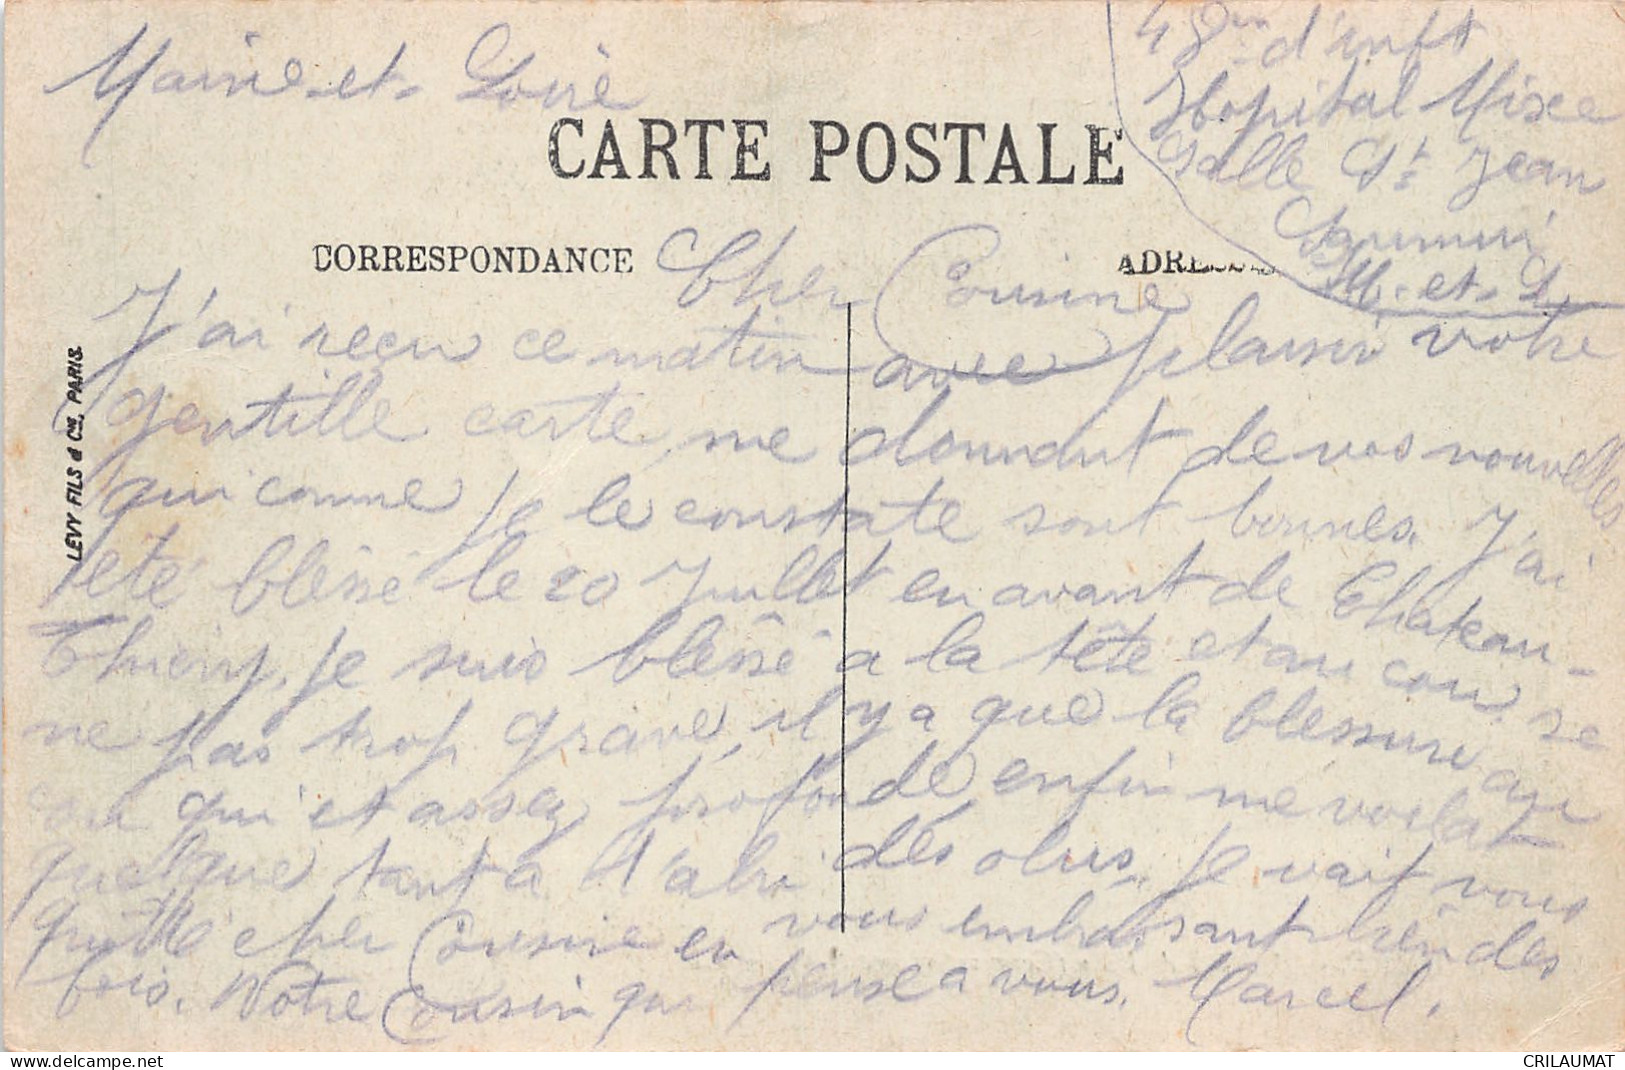 Maine-et-Loire
48em d'inft
Hopital Mixe
Salle St Jean
Saumur
M.-et-L
CARTE POSTALE
CORRESPONDANCE
ADRESSE
LEVY FILS & Cie, PARIS.
Cher Cousine
J'ai reçu ce matin avec plaisir votre
gentille carte me donnant de vos nouvelles
qui comme je le constate sont bonnes. J'ai
été blèssé le 20 Juillet en avant de Chateau-
Thiery, je suis blèssé a la tête et au cou se
ne pas trop grave, il y a que la blessure au
cou qui et assez profonde, enfin me voilat
quelque tant a l'abri des obus. Je vait vous
quitté cher Cousine en vous embrassant bien des
fois. Votre Cousin qui pense a vous. Marcel.
CRILAUMAT
delcampe.net